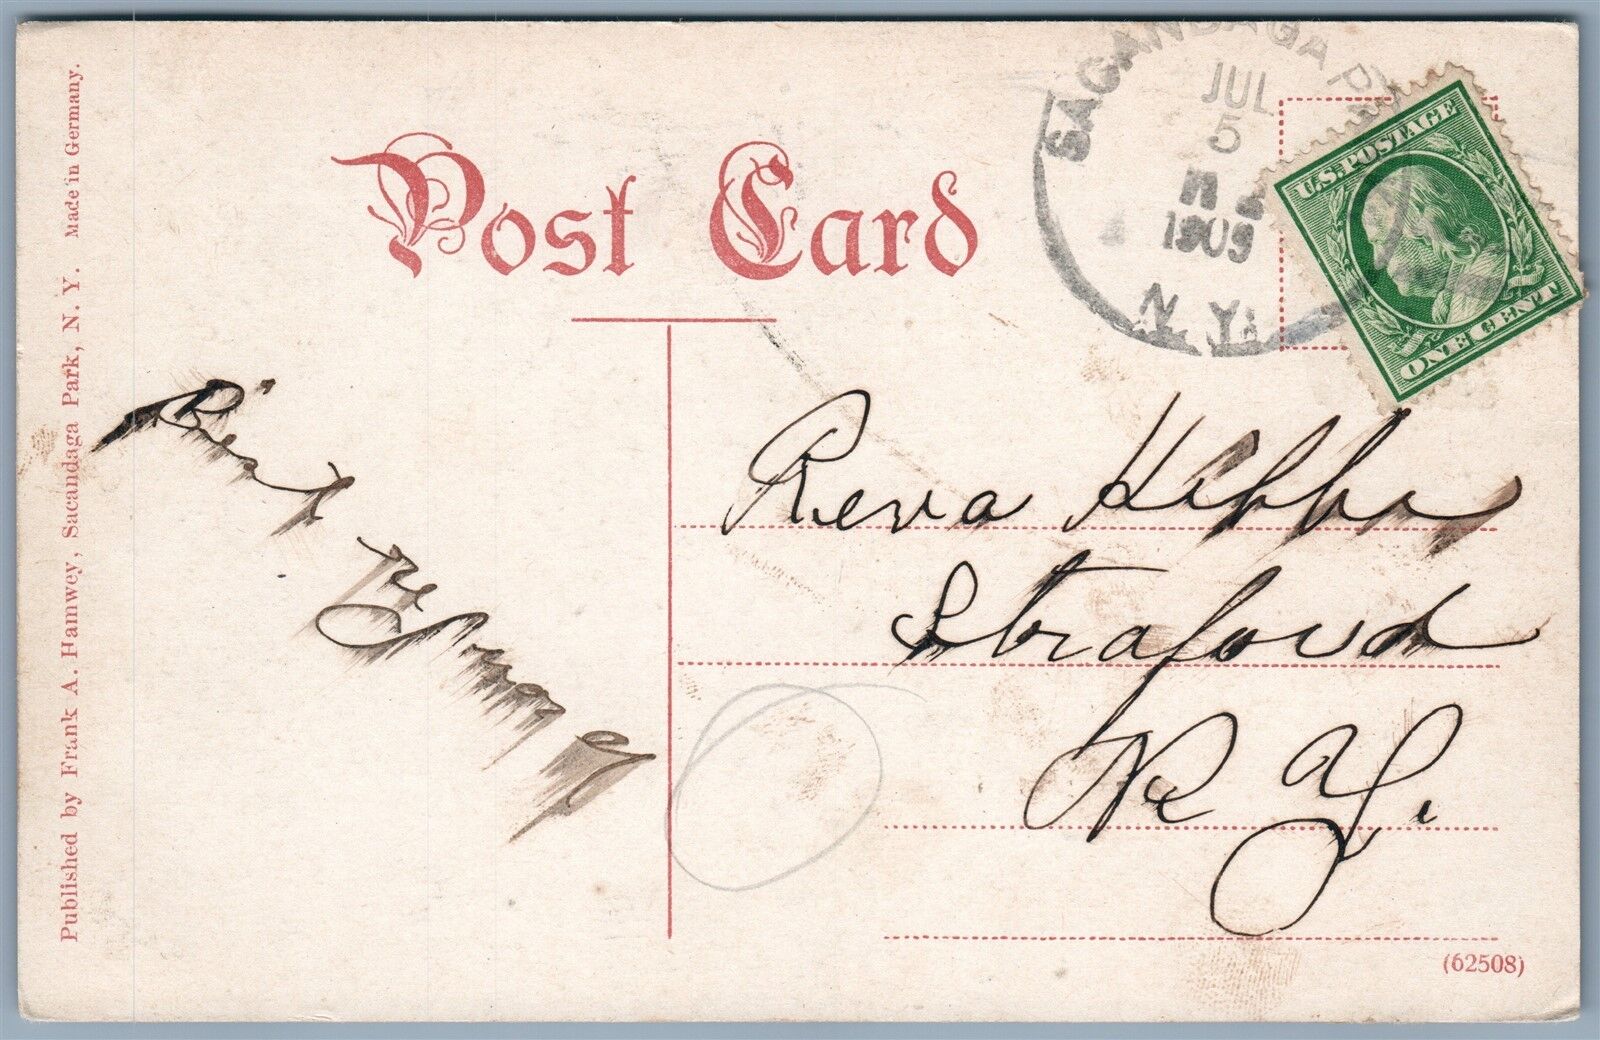 Post Card
SACANDAGA PARK
JUL
5
1909
N.Y.
U.S. POSTAGE
ONE CENT
Reva Hipps
Stratford
N. Y.
Published by Frank A. Hamwey, Sacandaga Park, N. Y. Made in Germany.
(62508)